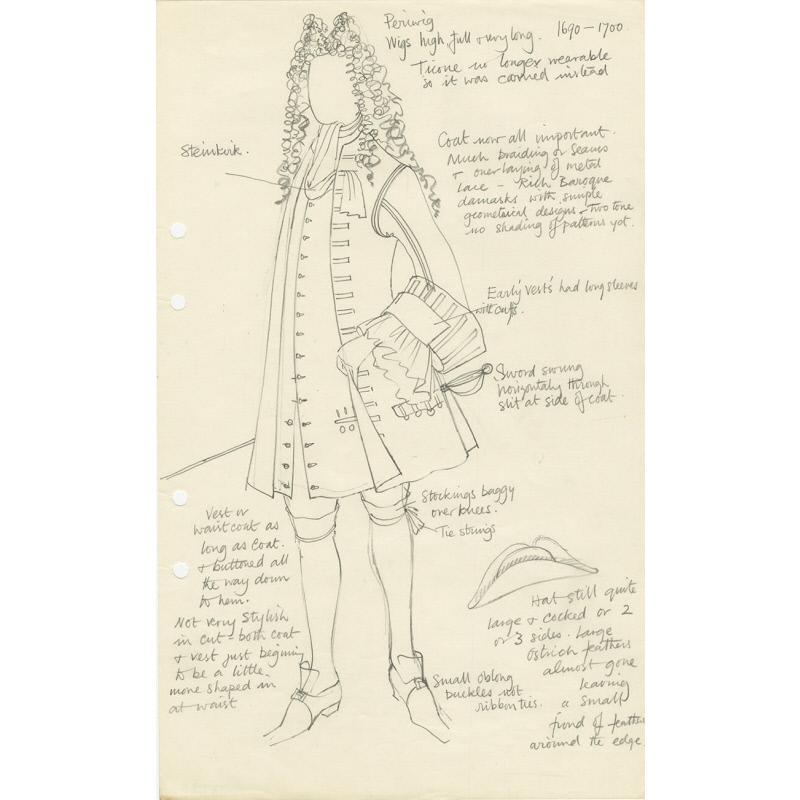 Periwig
1690-1700
Wigs high, full & very long.
Ticone no longer wearable
so it was carried instead
Steinkirk.
Coat now all important.
Much braiding on seams
& over laying of metal
lace - Rich Baroque
damasks with simple
geometrical designs - two tone
no shading of patterns yet.
Early vest's had long sleeves
with cuffs.
Sword swung
horizontaly through
slit at side of coat.
Stockings baggy
over knees.
Tie strings
Vest or
waistcoat as
long as coat.
& buttoned all
the way down
to hem.
Not very stylish
in cut - both coat
& vest just begining
to be a little
more shaped in
at waist
Hat still quite
large & cocked on 2
or 3 sides. Large
Ostrich feathers
almost gone
leaving
a small
frond of feather
around the edge.
Small oblong
buckles not
ribbon ties.